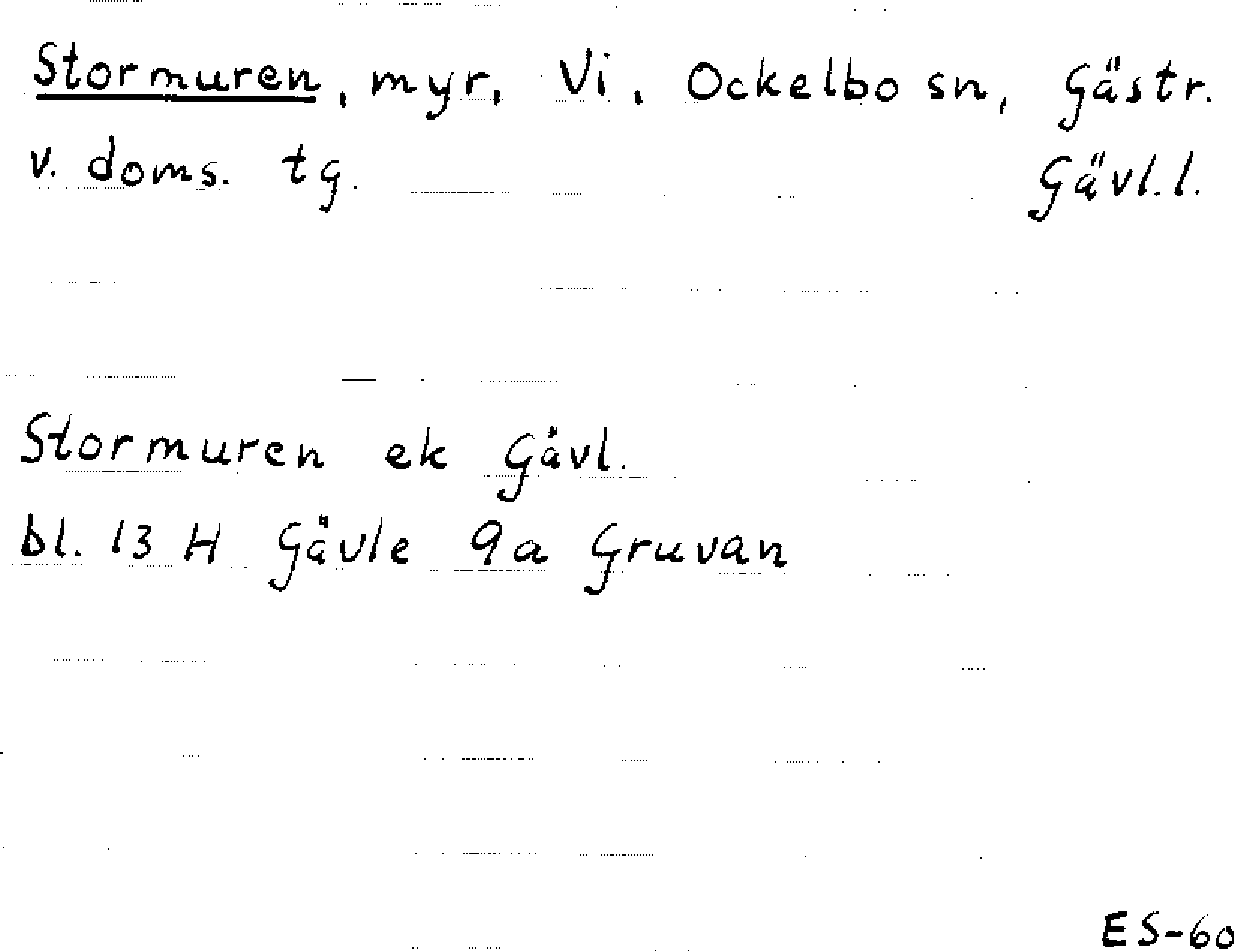 Stormuren, myr, Vi, Ockelbo sn, Gästr.
v. doms. tg. Gävl.l.
Stormuren ek Gävl.
bl. 13 H Gävle 9a Gruvan
ES-60